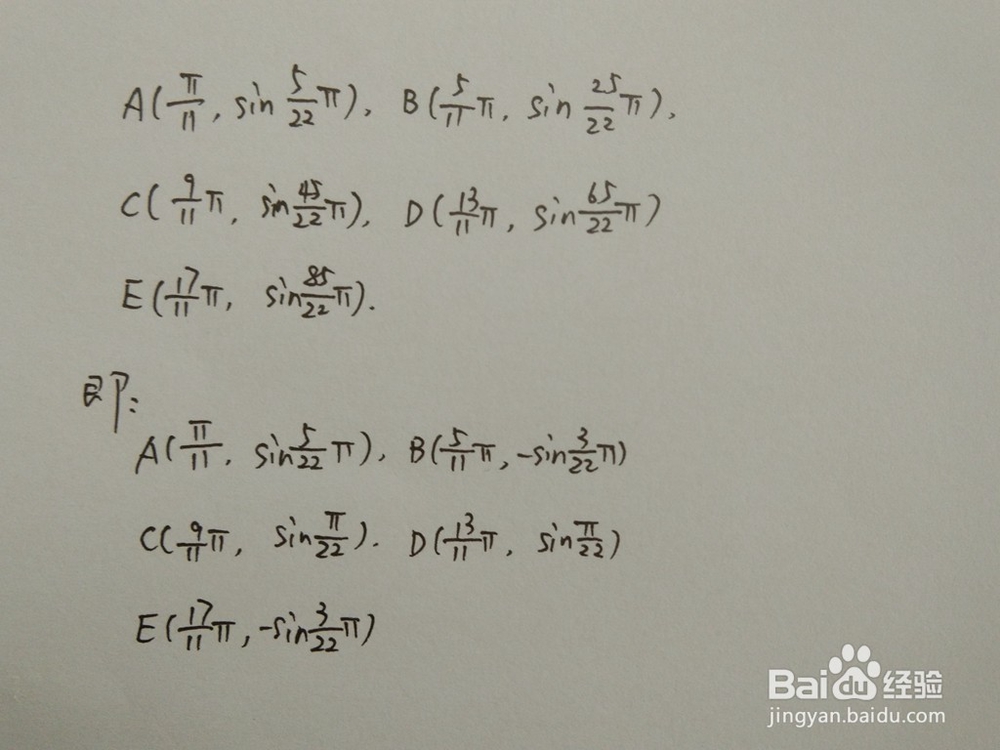 A(π/11, sin 5/22 π), B(5/11 π, sin 25/22 π),
C(9/11 π, sin 45/22 π), D(13/11 π, sin 65/22 π)
E(17/11 π, sin 85/22 π).
即:
A(π/11, sin 5/22 π), B(5/11 π, -sin 3/22 π)
C(9/11 π, sin π/22). D(13/11 π, sin π/22)
E(17/11 π, -sin 3/22 π)
Baidu经验
jingyan.baidu.com